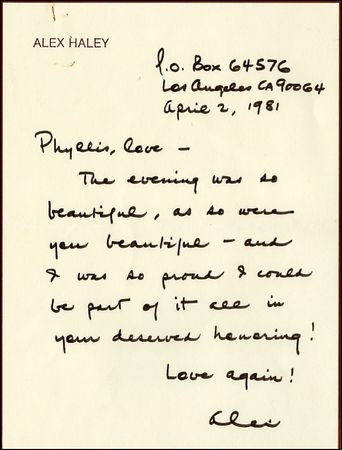 ALEX HALEY
P.O. Box 64576
Los Angeles CA 90064
April 2, 1981
Phyllis, love —
The evening was so
beautiful, as so were
you beautiful - and
I was so proud I could
be part of it all in
your deserved honoring!
Love again!
Alex